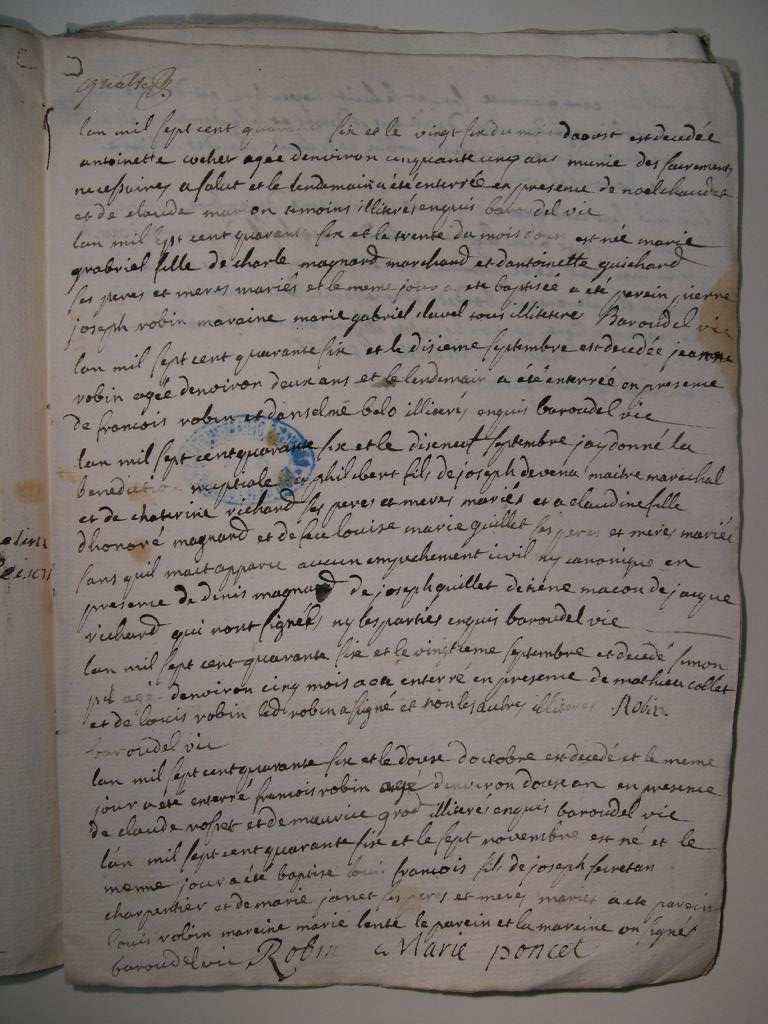 quatre
lan mil sept cent quarante six et le vingt six du mois daoust est decedée
antoinette cocher agée denviron cinquante cinq ans munie des sacrements
necessaires a salut et le lendemain a été enterrée en presence de noel chaudet
et de claude maron temoins illiterés enquis baroudel vic
lan mil sept cent quarante six et le trente du mois daoust est née marie
grabriel fille de charle magnard marchand et dantoinette guichard
ses peres et meres mariés et le meme jour a eté baptisée a été parein pierre
joseph robin maraine marie gabriel clavel tous illiteré Baroudel vic
lan mil sept cent quarante six et le disieme septembre est decedée jeanne
robin agée denviron deux ans et le lendemain a été enterrée en presence
de francois robin et danselme belo illiterés enquis baroudel vic
lan mil sept cent quarante six et le diseneuf septembre jay donné la
benediction nuptiale a philibert fils de joseph devena maitre marechal
et de chaterine richard ses peres et meres mariés et a claudine fille
dhonoré magnard et de feue louise marie guillet ses peres et meres mariés
sans quil mait apparu aucun empechement civil ny canonique en
presence de denis magnard de joseph guillet detiene macon de jacque
richard qui nont signés ny les parties enquis baroudel vic
lan mil sept cent quarante six et le vingtieme septembre et decedé simon
agé denviron cinq mois a eté enterré en presence de mathieu collet
et de louis robin led robin a signé et non les autres illiteres Robin
baroudel vic
lan mil sept cent quarante six et le douse doctobre est decedé et le meme
jour a été enterré francois robin agé denviron douse an en presence
de claude rosset et de maurice grod illiteres enquis baroudel vic
lan mil sept cent quarante six et le sept novembre est né et le
meme jour a été baptise louis francois fils de joseph secretan
charpentier et de marie janet ses peres et merés mariés a ete parein
louis robin maraine marie lente le parein et la maraine on signés
baroudel vic Robin Marie poncet